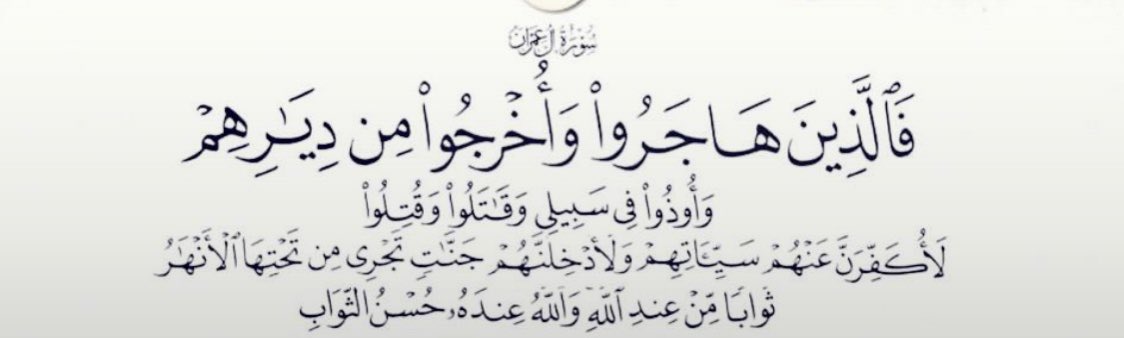 سُورَةُ آلِ عِمْرَان
فَٱلَّذِينَ هَاجَرُوا۟ وَأُخْرِجُوا۟ مِن دِيَـٰرِهِمْ
وَأُوذُوا۟ فِى سَبِيلِى وَقَـٰتَلُوا۟ وَقُتِلُوا۟
لَأُكَفِّرَنَّ عَنْهُمْ سَيِّـَٔاتِهِمْ وَلَأُدْخِلَنَّهُمْ جَنَّـٰتٍ تَجْرِى مِن تَحْتِهَا ٱلْأَنْهَـٰرُ
ثَوَابًا مِّنْ عِندِ ٱللَّهِ وَٱللَّهُ عِندَهُۥ حُسْنُ ٱلثَّوَابِ